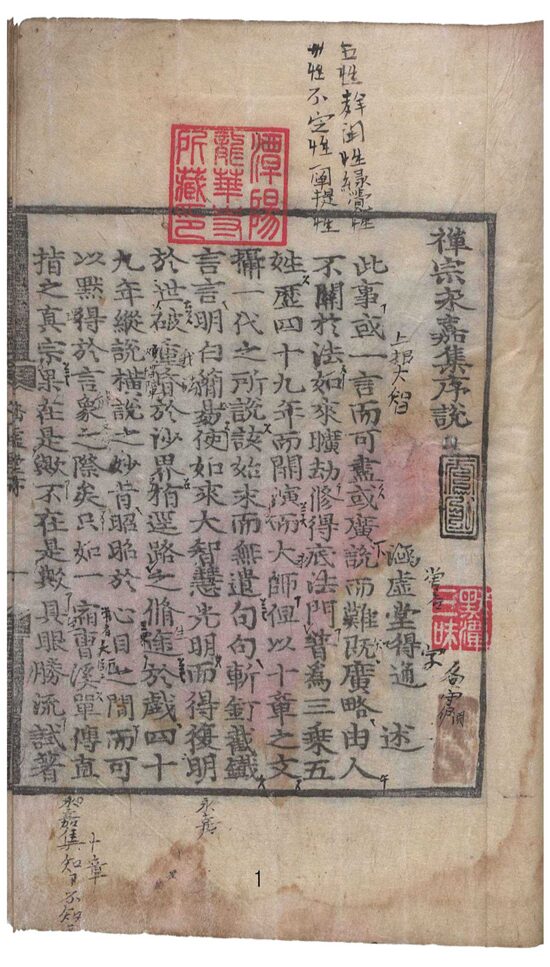 五性者聞性緣覺性
性不定性闡提性
潭陽
龍華寺
所藏印
禪宗永嘉集序說
涵虛堂得通 述
上根大智
三昧
此事或一言而可盡或廣說而難既廣略由人
不關於法如來曠劫修得底法門普爲三乘五
姓歷四十九年而開演而大師但以十章之文
攝一代之所說該始末而無遺句句斬釘截鐵
言言明白簡易使如來大智慧光明而得復明
於世破重昏於沙界逕路之脩途於戲四十
九年縱說橫說之妙皆昭昭於心目之間而可
以默得於言象之際矣只如一宿曹溪單傳直
指之真宗果在是歟不在是歟具眼勝流試著
永嘉
十章
永嘉集知不知
1